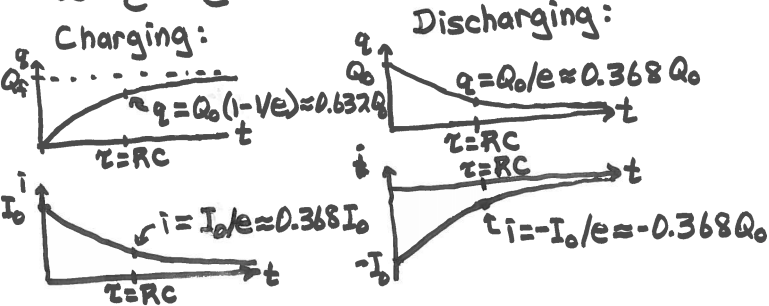 Charging:
q
Qf
q = Q₀(1-1/e)≈0.632Q
t
τ=RC
i
I₀
i = I₀/e≈0.368 I₀
t
τ=RC
Discharging:
q
Q₀
q=Q₀/e≈0.368 Q₀
t
τ=RC
i
τ=RC
t
i=-I₀/e≈-0.368Q₀
-I₀